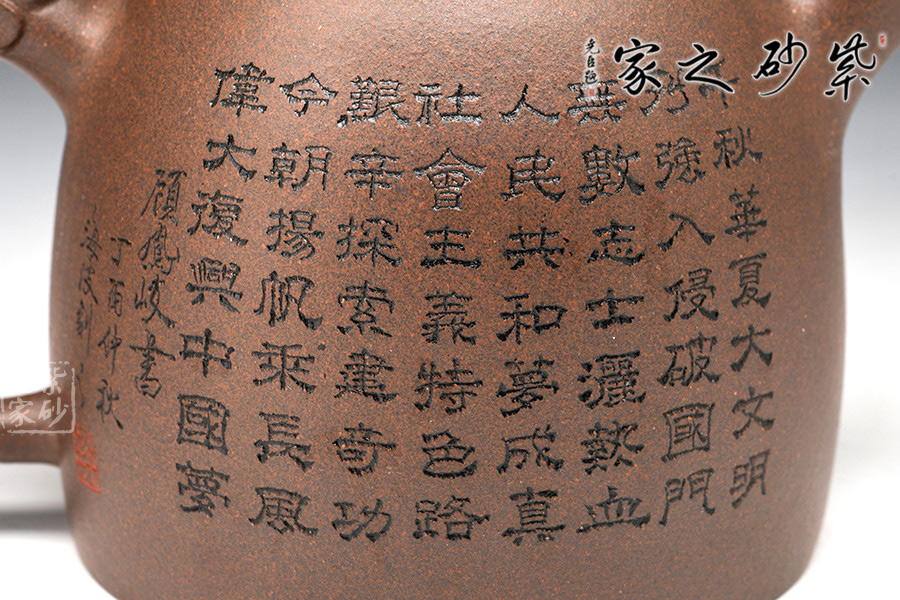 紫砂之家
秋華夏大文明
強入侵破國門
無數志士灑熱血
人民共和夢成真
社會主義特色路
艱辛探索建奇功
今朝揚帆乘長風
偉大復興中國夢
顧鳳岐書
丁酉仲秋